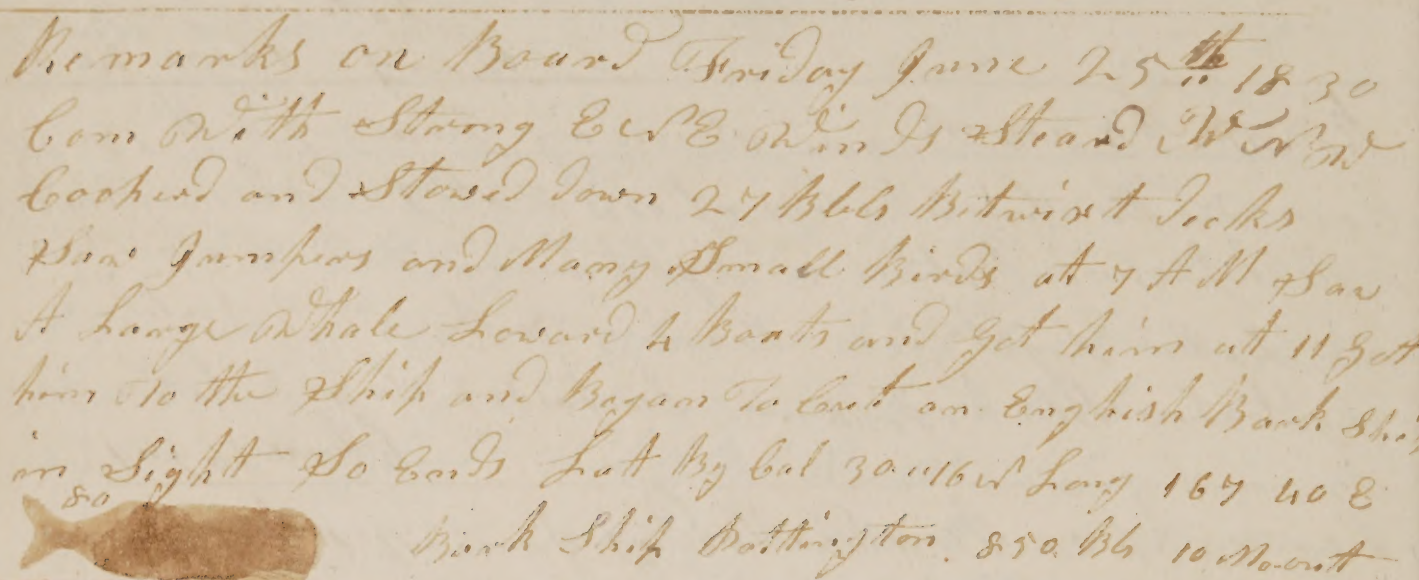 Remarks on Board Friday June 25th 1830
Com With Strong E N E Winds Steard W N W
Cooherd and Stowed down 27 Bbls Bitwixt decks
Saw Jumpers and Many Small Birds at 7 A M Saw
A Large Whale Loward 4 Boats and Got him at 11 Gott
him To the Ship and Began To Cut an English Bark Ship
in Sight So Ends Latt By Cal 30"16 N Long 167 40 E
80
Bark Ship 850 Bls 10 Mo out